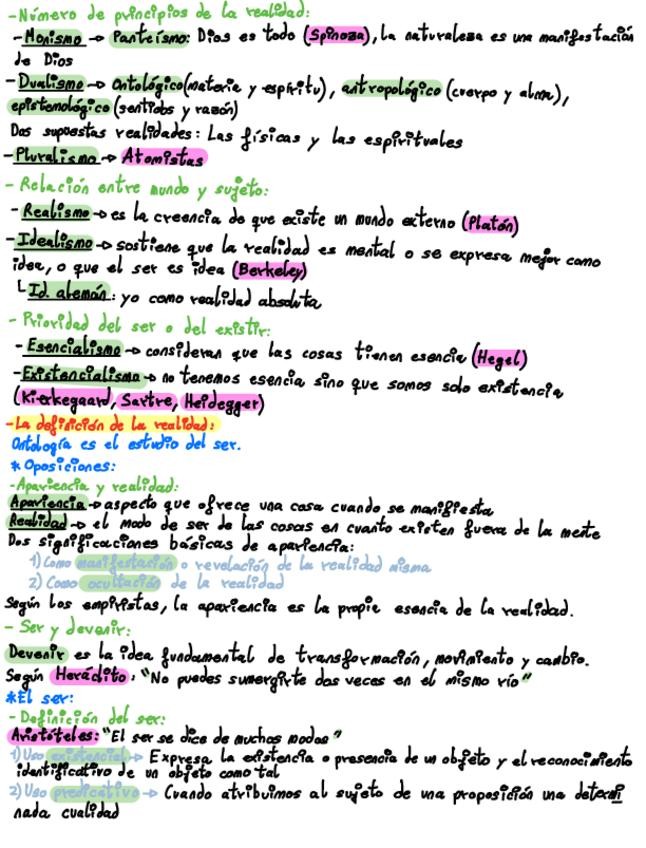 -Número de principios de la realidad:
-Monismo → Panteísmo: Dios es todo (Spinoza), la naturaleza es una manifestación
de Dios
-Dualismo → Ontológico (materia y espíritu), antropológico (cuerpo y alma),
epistemológico (sentidos y razón)
Dos supuestas realidades: Las físicas y las espirituales
-Pluralismo → Atomistas
- Relación entre mundo y sujeto:
- Realismo → es la creencia de que existe un mundo externo (Platón)
-Idealismo → sostiene que la realidad es mental o se expresa mejor como
idea, o que el ser es idea (Berkeley)
└ Id. alemán: yo como realidad absoluta
- Prioridad del ser o del existir:
- Esencialismo → consideran que las cosas tienen esencia (Hegel)
-Existencialismo → no tenemos esencia sino que somos solo existencia
(Kierkegaard, Sartre, Heidegger)
-La definición de la realidad:
Ontología es el estudio del ser.
* Oposiciones:
-Apariencia y realidad:
Apariencia → aspecto que ofrece una cosa cuando se manifiesta
Realidad → el modo de ser de las cosas en cuanto existen fuera de la mente
Dos significaciones básicas de apariencia:
1) Como manifestación o revelación de la realidad misma
2) Como ocultación de la realidad
Según los empiristas, la apariencia es la propia esencia de la realidad.
- Ser y devenir:
Devenir es la idea fundamental de transformación, movimiento y cambio.
Según Heráclito: "No puedes sumergirte dos veces en el mismo río"
*El ser:
- Definición del ser:
Aristóteles: "El ser se dice de muchos modos"
1) Uso existencial → Expresa la existencia o presencia de un objeto y el reconocimiento
identificativo de un objeto como tal
2) Uso predicativo → Cuando atribuimos al sujeto de una proposición una determi
nada cualidad